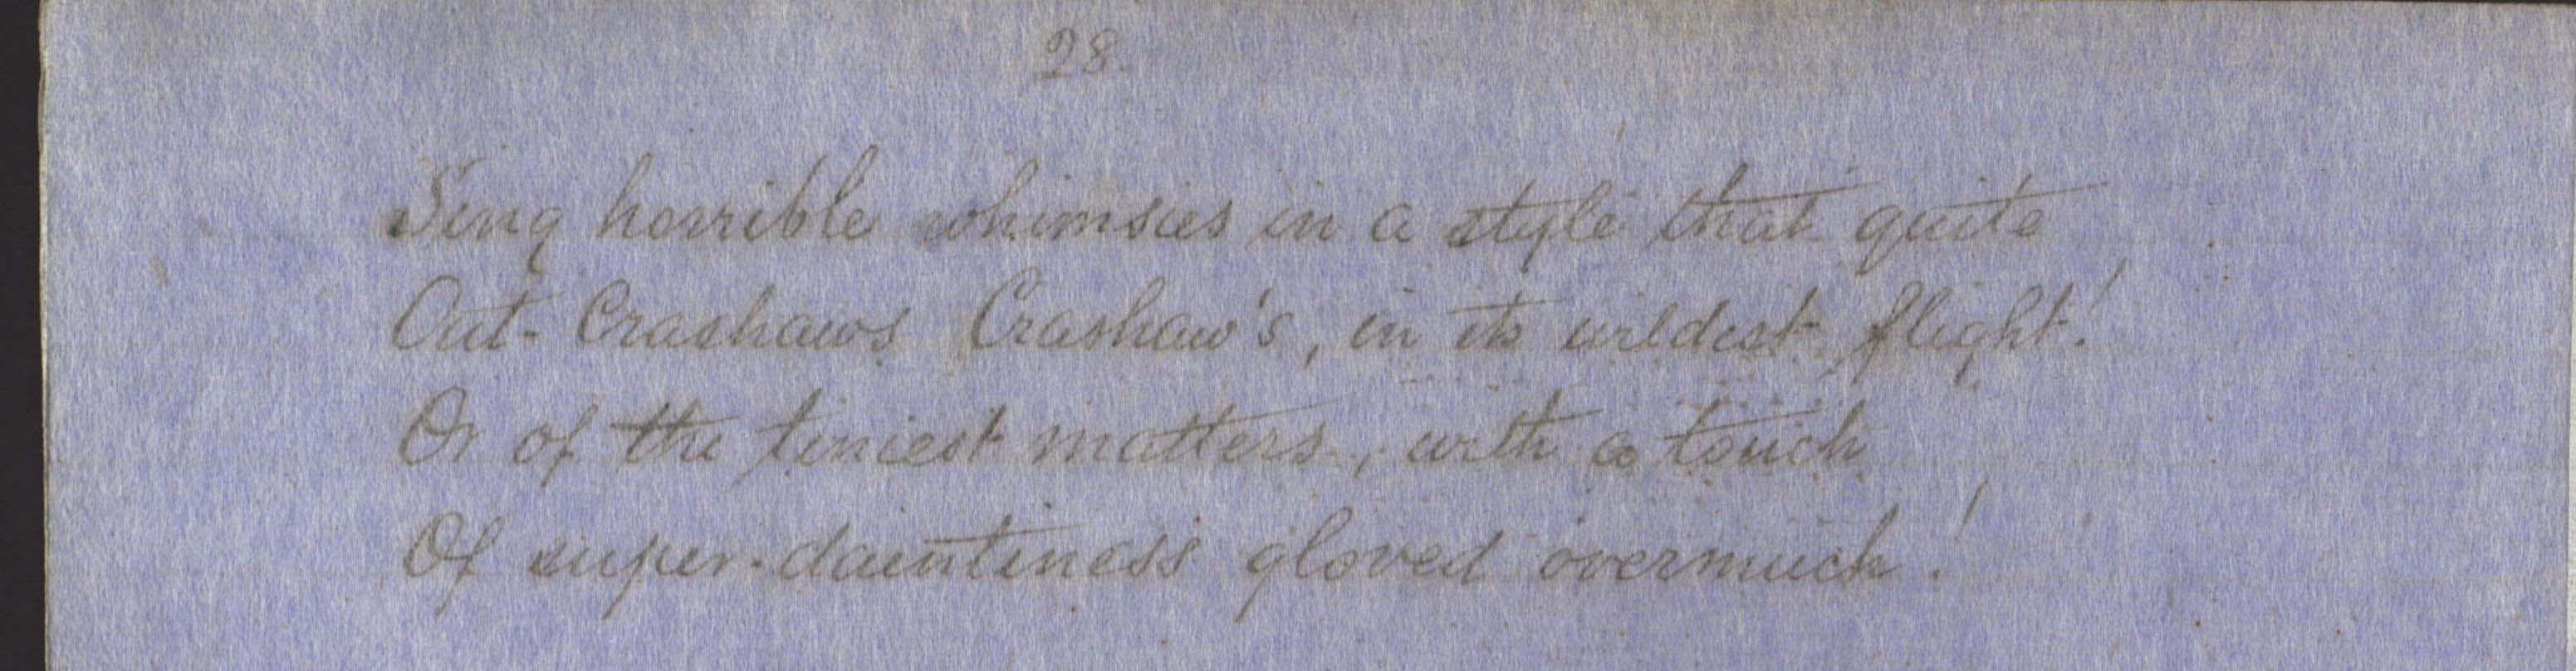 28.
Sing horrible whimsies in a style that quite
Out-Crashaws Crashaw's, in its wildest flight!
Or of the tiniest matters, with a touch
Of super-daintiness gloved overmuch!